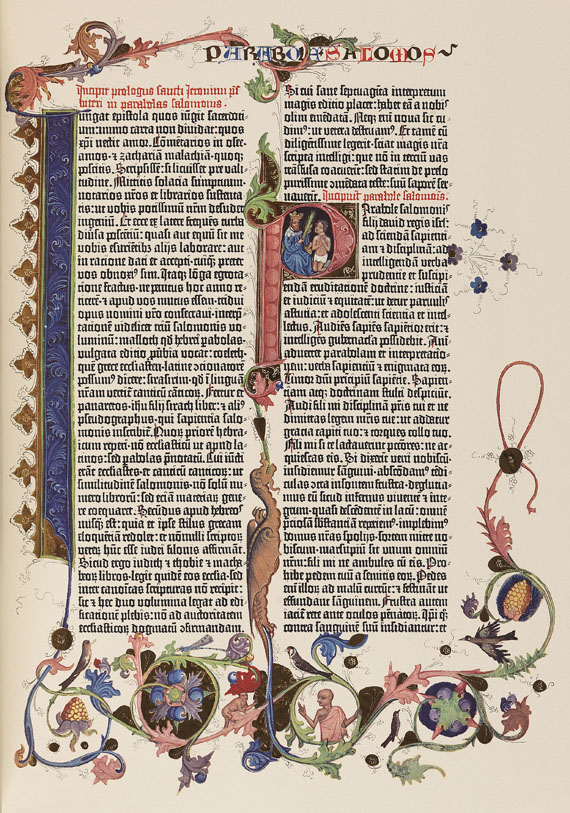 PARABOLE SALOMOIS
Incipit prologus sancti Jeronimi
in parabolas salomonis.
Iungat epistola quos iungit sacerdoti-
um: immo carta non dividat: quos
xpi nectit amor. Comentarios in osee.
amos. et zachariam malachiam. quoq
poscitis. Scripsissem: si licuisset pre vali-
tudine. Mittitis solacia sumptuum.
notarios nros et librarios sustenta-
tis: ut vobis potissimum nrm desudet
ingenium. Et ecce ex latere frequens turba
diversa poscentium: quasi aut equum sit me
vobis esurientibus alijs laborare: aut
in ratione dati et accepti. cuiq preter
vos obnoxius sim. Itaq longa egrota-
tione fractus. ne penitus hoc anno re-
ticerem et apud vos mutus essem. tridui
opus nomini vro consecravi. interp-
tationem videlicet trium salomonis vo-
luminum: masloth quod hebrei parabolas.
vulgata editio pverbia vocat: coeleth.
quem grece ecclesiasten. latine concionatorem
possumus dicere: sirasirim. quod in linguam
nram vertitur canticum canticorum. Fertur et
panaretos. ihu filij sirach liber: et alius
pseudographus. qui sapientia salo-
monis inscribitur. Quorum priorem hebra-
icum repperi. non ecclesiasticum ut apud la-
tinos: sed parabolas pnotatum. Cui iuncti
erant ecclesiastes. et canticum canticorum: ut
similitudinem salomonis. non solum nu-
mero librorum: sed etiam materiarum gene-
re coequaret. Secundus apud hebreos
nusq est: quia et ipse stilus grecam
eloquentiam redolet: et nonnulli scriptorum
veterum hunc esse iudei filonis affirmant.
Sicut ergo iudith et thobie et macha-
beorum libros. legit quidem eos ecclesia. sed
inter canonicas scripturas non recipit:
sic et hec duo volumina legat ad edi-
ficationem plebis: non ad auctoritatem
ecclesiasticorum dogmatum confirmandam.
Si cui sane septuaginta interpretum
magis editio placet: habet eam a nobis
olim emendatam. Neq enim nova sic cu-
dimus: ut vetera destruamus. Et tamen cum
diligentissime legerit. sciat magis nra
scripta intelligi: que non in tercium vas
transfusa coacuerint: sed statim de prelo
purissime comendata teste: suum saporem ser-
vaverint. Incipiunt parabole salomonis.
Parabole salomonis
filij david regis israel:
ad sciendam sapienti-
am et disciplinam: ad
intelligendam verba
prudentie et suscipi-
endam eruditionem doctrine: iusticiam
et iudicium et equitatem: ut detur parvulis
astutia: et adolescenti sciencia et intel-
lectus. Audiens sapiens sapientior erit: et
intelligens gubernacula possidebit. Ani-
advertet parabolam et interpretatio-
nem: verba sapientium et enigmata eorum.
Timor dni principium sapientie. Sapien-
tiam atq doctrinam stulti despiciunt.
Audi fili mi disciplinam pris tui et ne
dimittas legem mris tue: ut addatur
gracia capiti tuo: et torques collo tuo.
Fili mi si te lactaverint peccatores: ne ac-
quiescas eis. Si dixerint veni nobiscum.
insidiemur sanguini. abscondamus tendi-
culas contra insontem frustra. deglutia-
mus eum sicut infernus viventem et inte-
grum. quasi descendentem in lacum: omnem
preciosam substanciam reperiemus. implebimus
domus nras spolijs. sortem mitte no-
biscum. marsupium sit unum omnium
nrum: fili mi ne ambules cum eis. Pro-
hibe pedem tuum a semitis eorum. Pedes
enim illorum ad malum currunt: et festinant ut
effundant sanguinem. Frustra autem
iacitur rete ante oculos pennatorum. Ipsi quoq
contra sanguinem suum insidiantur: et